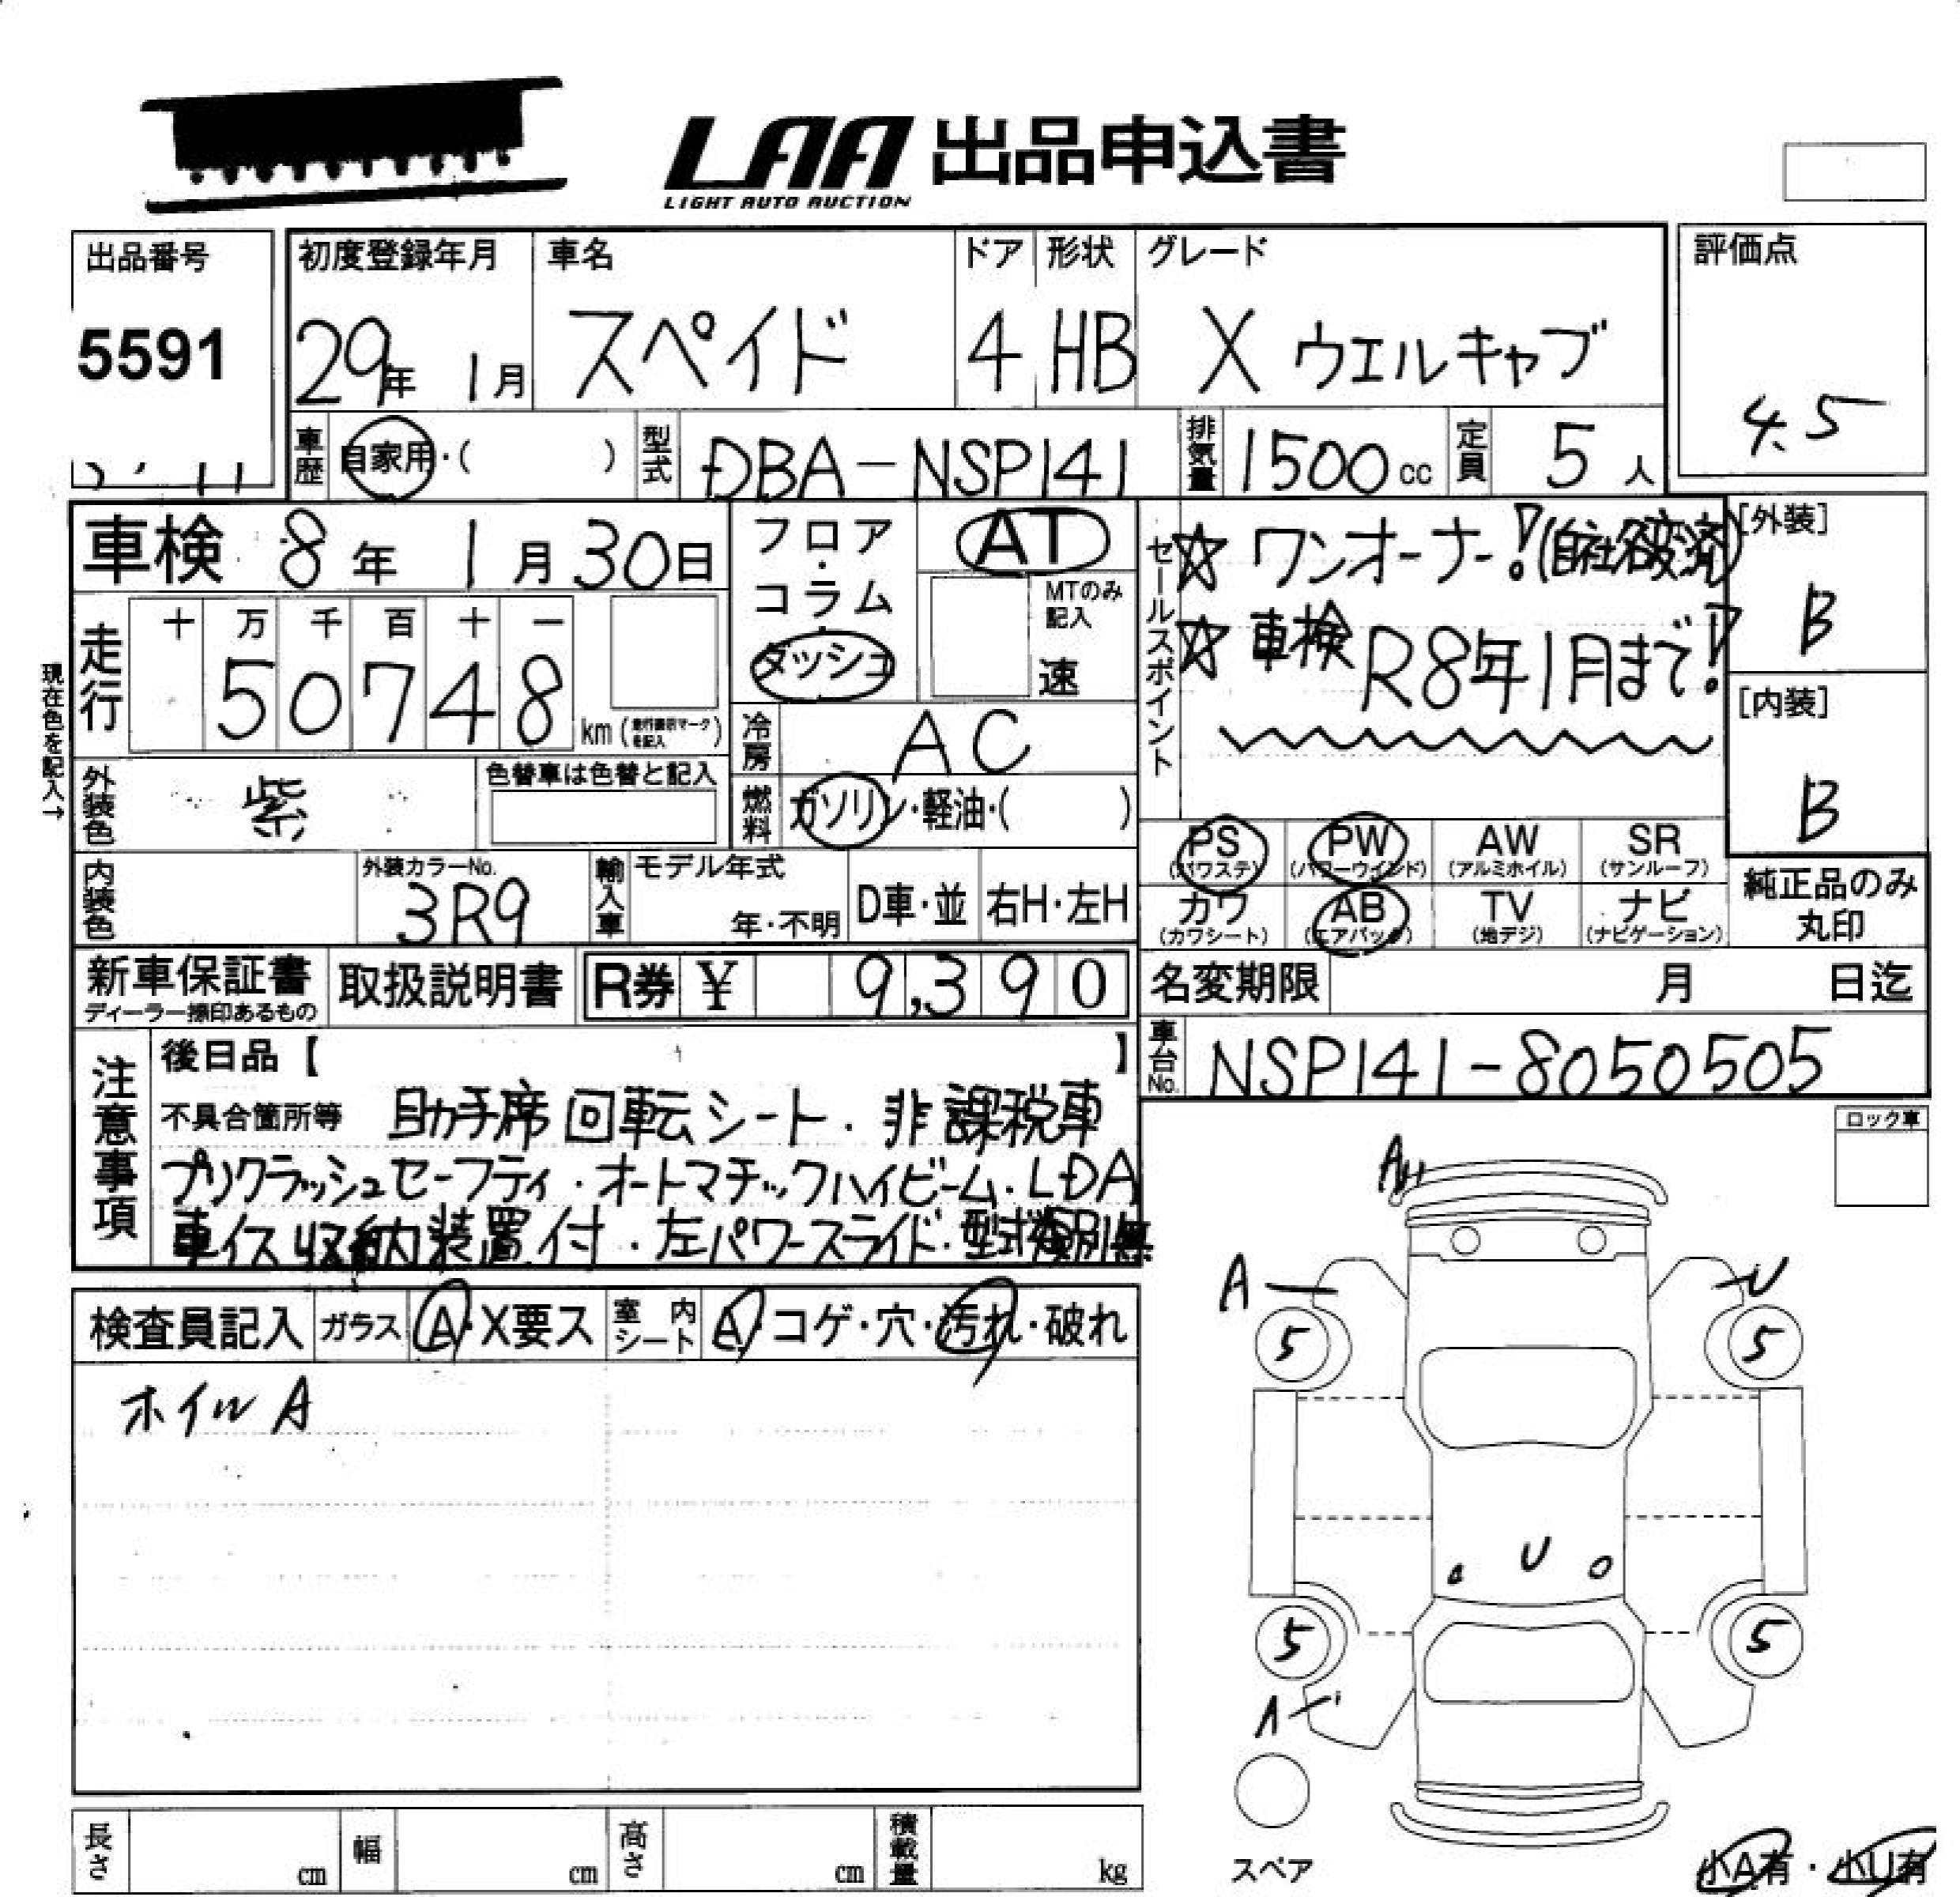 LAA 出品申込書
LIGHT AUTO AUCTION
出品番号
5591
初度登録年月 車名 ドア 形状 グレード
29年 1月 スペイド 4 HB X ウエルキャブ
評価点
4.5
車歴 自家用・( ) 型式 DBA-NSP141 排気量 1500cc 定員 5人
車検 8年 1月 30日
フロア・コラム・ダッシュ
AT
MTのみ記入
速
セールスポイント
☆ ワンオーナー!(自社名変済)
☆ 車検 R8年1月まで!
[外装]
B
[内装]
B
走行 十 万 千 百 十 一
50748 km (走行表示マークを記入)
現在色を記入→
冷房 AC
外装色 紫 色替車は色替と記入
燃料 ガソリン・軽油・( )
PS (パワステ) PW (パワーウインド) AW (アルミホイル) SR (サンルーフ)
カワ (カワシート) AB (エアバック) TV (地デジ) ナビ (ナビゲーション)
純正品のみ丸印
内装色 外装カラーNo. 3R9 輸入車 モデル年式 年・不明 D車・並 右H・左H
新車保証書 ディーラー捺印あるもの 取扱説明書 R券 ¥ 9,390
名変期限 月 日迄
車台No. NSP141-8050505
注意事項
後日品【 】
不具合箇所等 助手席回転シート・非課税車
プリクラッシュセーフティ・オートマチックハイビーム・LDA
車イス収納装置付・左パワースライド・型式類別無
ロック車
検査員記入 ガラス A・X要ス 室内シート A・コゲ・穴・汚れ・破れ
ホイル A
A
A
U
5
5
U
5
5
A
スペア
小A有・小U有
長さ cm 幅 cm 高さ cm 積載量 kg